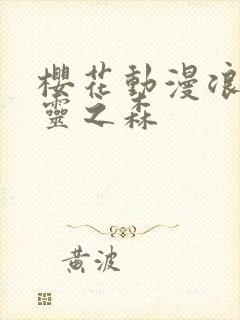 櫻花動漫浪
靈之森
黃波